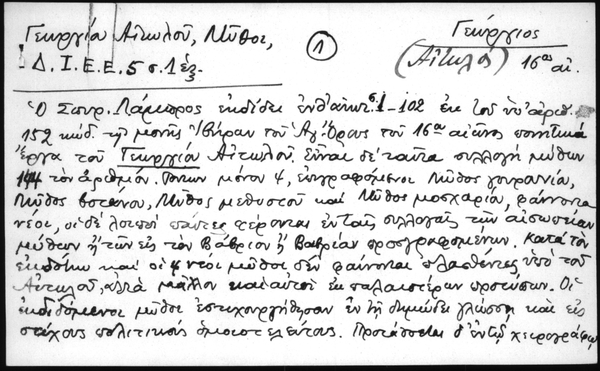 Γεωργίου Αἰτωλοῦ, Μῦθοι,
Δ. Ι. Ε. Ε. 5 σ. 1 ἑξ.
1
Γεώργιος
(Αἰτωλός) 16ος αἰ.
Ὁ Σπυρ. Λάμπρος ἐκδίδει ἐνθ' ἀνωτ. σ. 1–102 ἐκ τοῦ ὑπ' ἀριθ.
152 κώδ. τῆς μονῆς Ἰβήρων τοῦ Ἁγ. Ὄρους τοῦ 16ου αἰῶνος ποιητικὰ
ἔργα τοῦ Γεωργίου Αἰτωλοῦ. Εἶναι δὲ ταῦτα συλλογὴ μύθων
144 τὸν ἀριθμόν. Τούτων μόνον 4, ἐπιγραφόμενοι Μῦθος γουρουνία,
Μῦθος βοτάνου, Μῦθος μεθυστοῦ καὶ Μῦθος μοσχαρίου, φαίνονται
νέοι, οἱ δὲ λοιποὶ πάντες φέρονται ἐν ταῖς συλλογαῖς τῶν αἰσωπείων
μύθων ἢ τῶν εἰς τὸν Βάβριον ἢ Βαβρίαν προσγραφομένων. Κατὰ τὸν
ἐκδότην καὶ οἱ 4 νέοι μῦθοι δὲν φαίνονται πλασθέντες ὑπὸ τοῦ
Αἰτωλοῦ, ἀλλὰ μᾶλλον καὶ αὐτοὶ ἐκ παλαιοτέρων προτύπων. Οἱ
ἐκδιδόμενοι μῦθοι ἐστιχουργήθησαν ἐν τῇ δημώδει γλώσσῃ καὶ εἰς
στίχους πολιτικοὺς ὁμοιοτελεύτους. Προτάσσεται δ' ἐν τῷ χειρογράφῳ